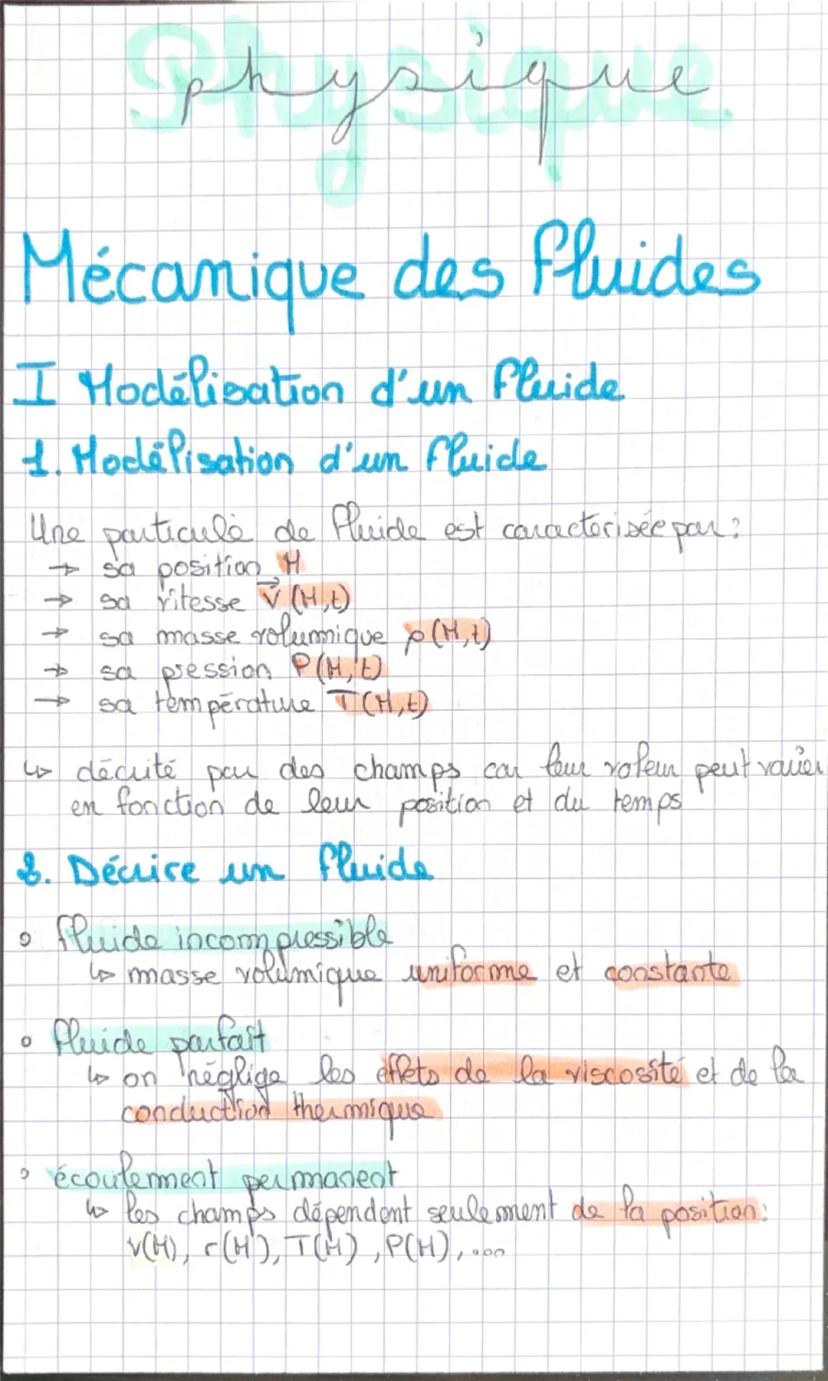 Physique
Mécanique des fluides
I Modélisation d'un fluide
1. Modélisation d'un fluide
Une particule de fluide est caractérisée par :
→ sa position M
→ sa vitesse v⃗(M,t)
→ sa masse volumique ρ(M,t)
→ sa pression P(M,t)
→ sa température T(M,t)
↳ décrité par des champs car leur valeur peut varier
en fonction de leur position et du temps
2. Décrire un fluide
◦ fluide incompressible
↳ masse volumique uniforme et constante
◦ fluide parfait
↳ on néglige les effets de la viscosité et de la
conduction thermique
◦ écoulement permanent
↳ les champs dépendent seulement de la position :
v(M), r(M), T(M), P(M), ...